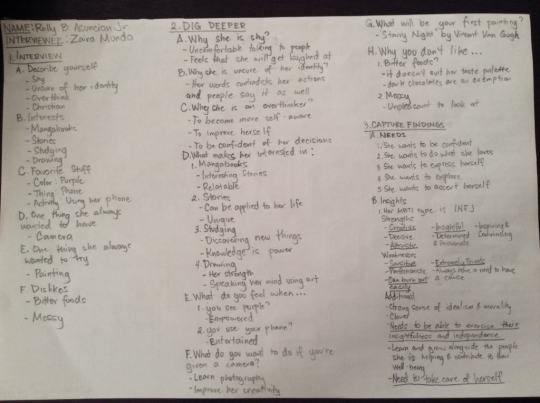 NAME: Rolly B. Asuncion Jr.
INTERVIEWEE: Zaira Mundo
1. INTERVIEW
A. Describe yourself
- Shy
- Unsure of her identity
- Overthink
- Christian
B. Interests
- Mangabooks
- Stories
- Studying
- Drawing
C. Favorite Stuff
- Color: Purple
- Thing: Phone
- Activity: Using her phone
D. One thing she always
wanted to have
- Camera
E. One thing she always
wanted to try
- Painting
F. Dislikes
- Bitter foods
- Messy
2. DIG DEEPER
A. Why she is shy?
- Uncomfortable talking to people
- Feels that she will get laughed at
B. Why she is unsure of her identity?
- Her words contradicts her actions
and people say it as well
C. Why she is an overthinker?
- To become more self-aware
- To improve herself
- To be confident of her decisions
D. What makes her interested in:
1. Mangabooks
- Interesting Stories
- Relatable
2. Stories
- Can be applied to her life
- Unique
3. Studying
- Discovering new things
- Knowledge is power
4. Drawing
- Her strength
- Speaking her mind using art
E. What do you feel when...
1. you see purple?
- Empowered
2. you use your phone?
- Entertained
F. What do you want to do if you're
given a camera?
- Learn photography
- Improve her creativity
G. What will be your first painting?
- Starry Night by Vincent Van Gogh
H. Why you don't like...
1. Bitter foods?
- it doesn't suit her taste palette
- dark chocolates are an exemption
2. Messy
- Unpleasant to look at
3. CAPTURE FINDINGS
A. NEEDS
1. She wants to be confident
2. She wants to do what she loves
3. She wants to express herself
4. She wants to explore
5. She wants to assert herself
B. Insights
1. Her MBTI type is INFJ
Strengths:
- Creative - Insightful - Inspiring &
- Decisive - Determined Convincing
- Altruistic & Passionate
Weaknesses
- Sensitive - Extremely Private
- Perfectionistic - Always have a need to have
- Can burn out a cause
easily
Additional
- Strong sense of idealism & morality
- Clever
- Needs to be able to exercise there
insightfulness and independence
- Learn and grow alongside the people
she is helping & contribute to their
well-being
- Need to take care of herself